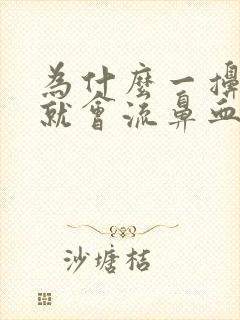 為什麼一擤
就會流鼻血
沙塘桔